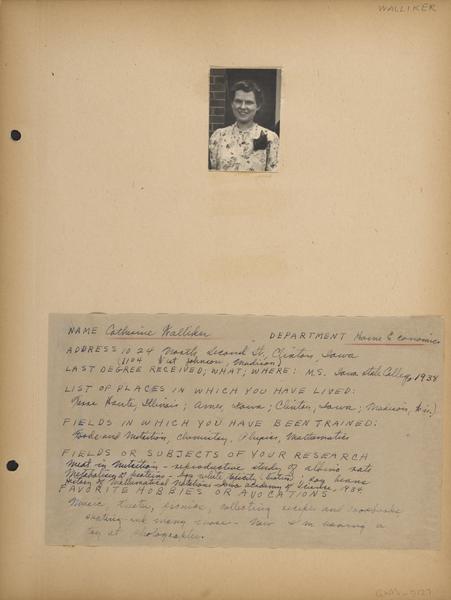 WALLIKER
NAME Catherine Walliker DEPARTMENT Home Economics
ADDRESS 1024 North Second St., Clinton, Iowa
(1104 West Johnson, Madison)
LAST DEGREE RECEIVED; WHAT; WHERE: M.S. Iowa State College, 1938
LIST OF PLACES IN WHICH YOU HAVE LIVED:
Terre Haute, Illinois; Ames, Iowa; Clinton, Iowa; Madison, Wis.
FIELDS IN WHICH YOU HAVE BEEN TRAINED:
Foods and Nutrition, Chemistry, Physics, Mathematics
FIELDS OR SUBJECTS OF YOUR RESEARCH
Meat in Nutrition - reproductive study of albino rats
Metabolism of proteins - egg white toxicity (biotin), soy beans
History of Mathematical Notations - Iowa Academy of Science, 1934
FAVORITE HOBBIES OR AVOCATIONS
Music, theater, picnics, collecting recipes and cookbooks
skating - and many more - Now I'm having a
try at photography.